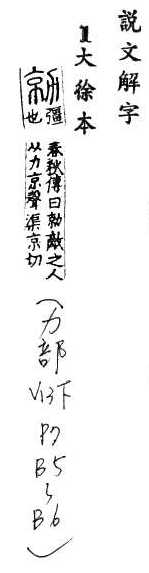 説文解字
1大徐本
勍 彊也 春秋傳曰勍敵之人 从力京聲 渠京切
(力部
V13下
P7
B5
~
B6)